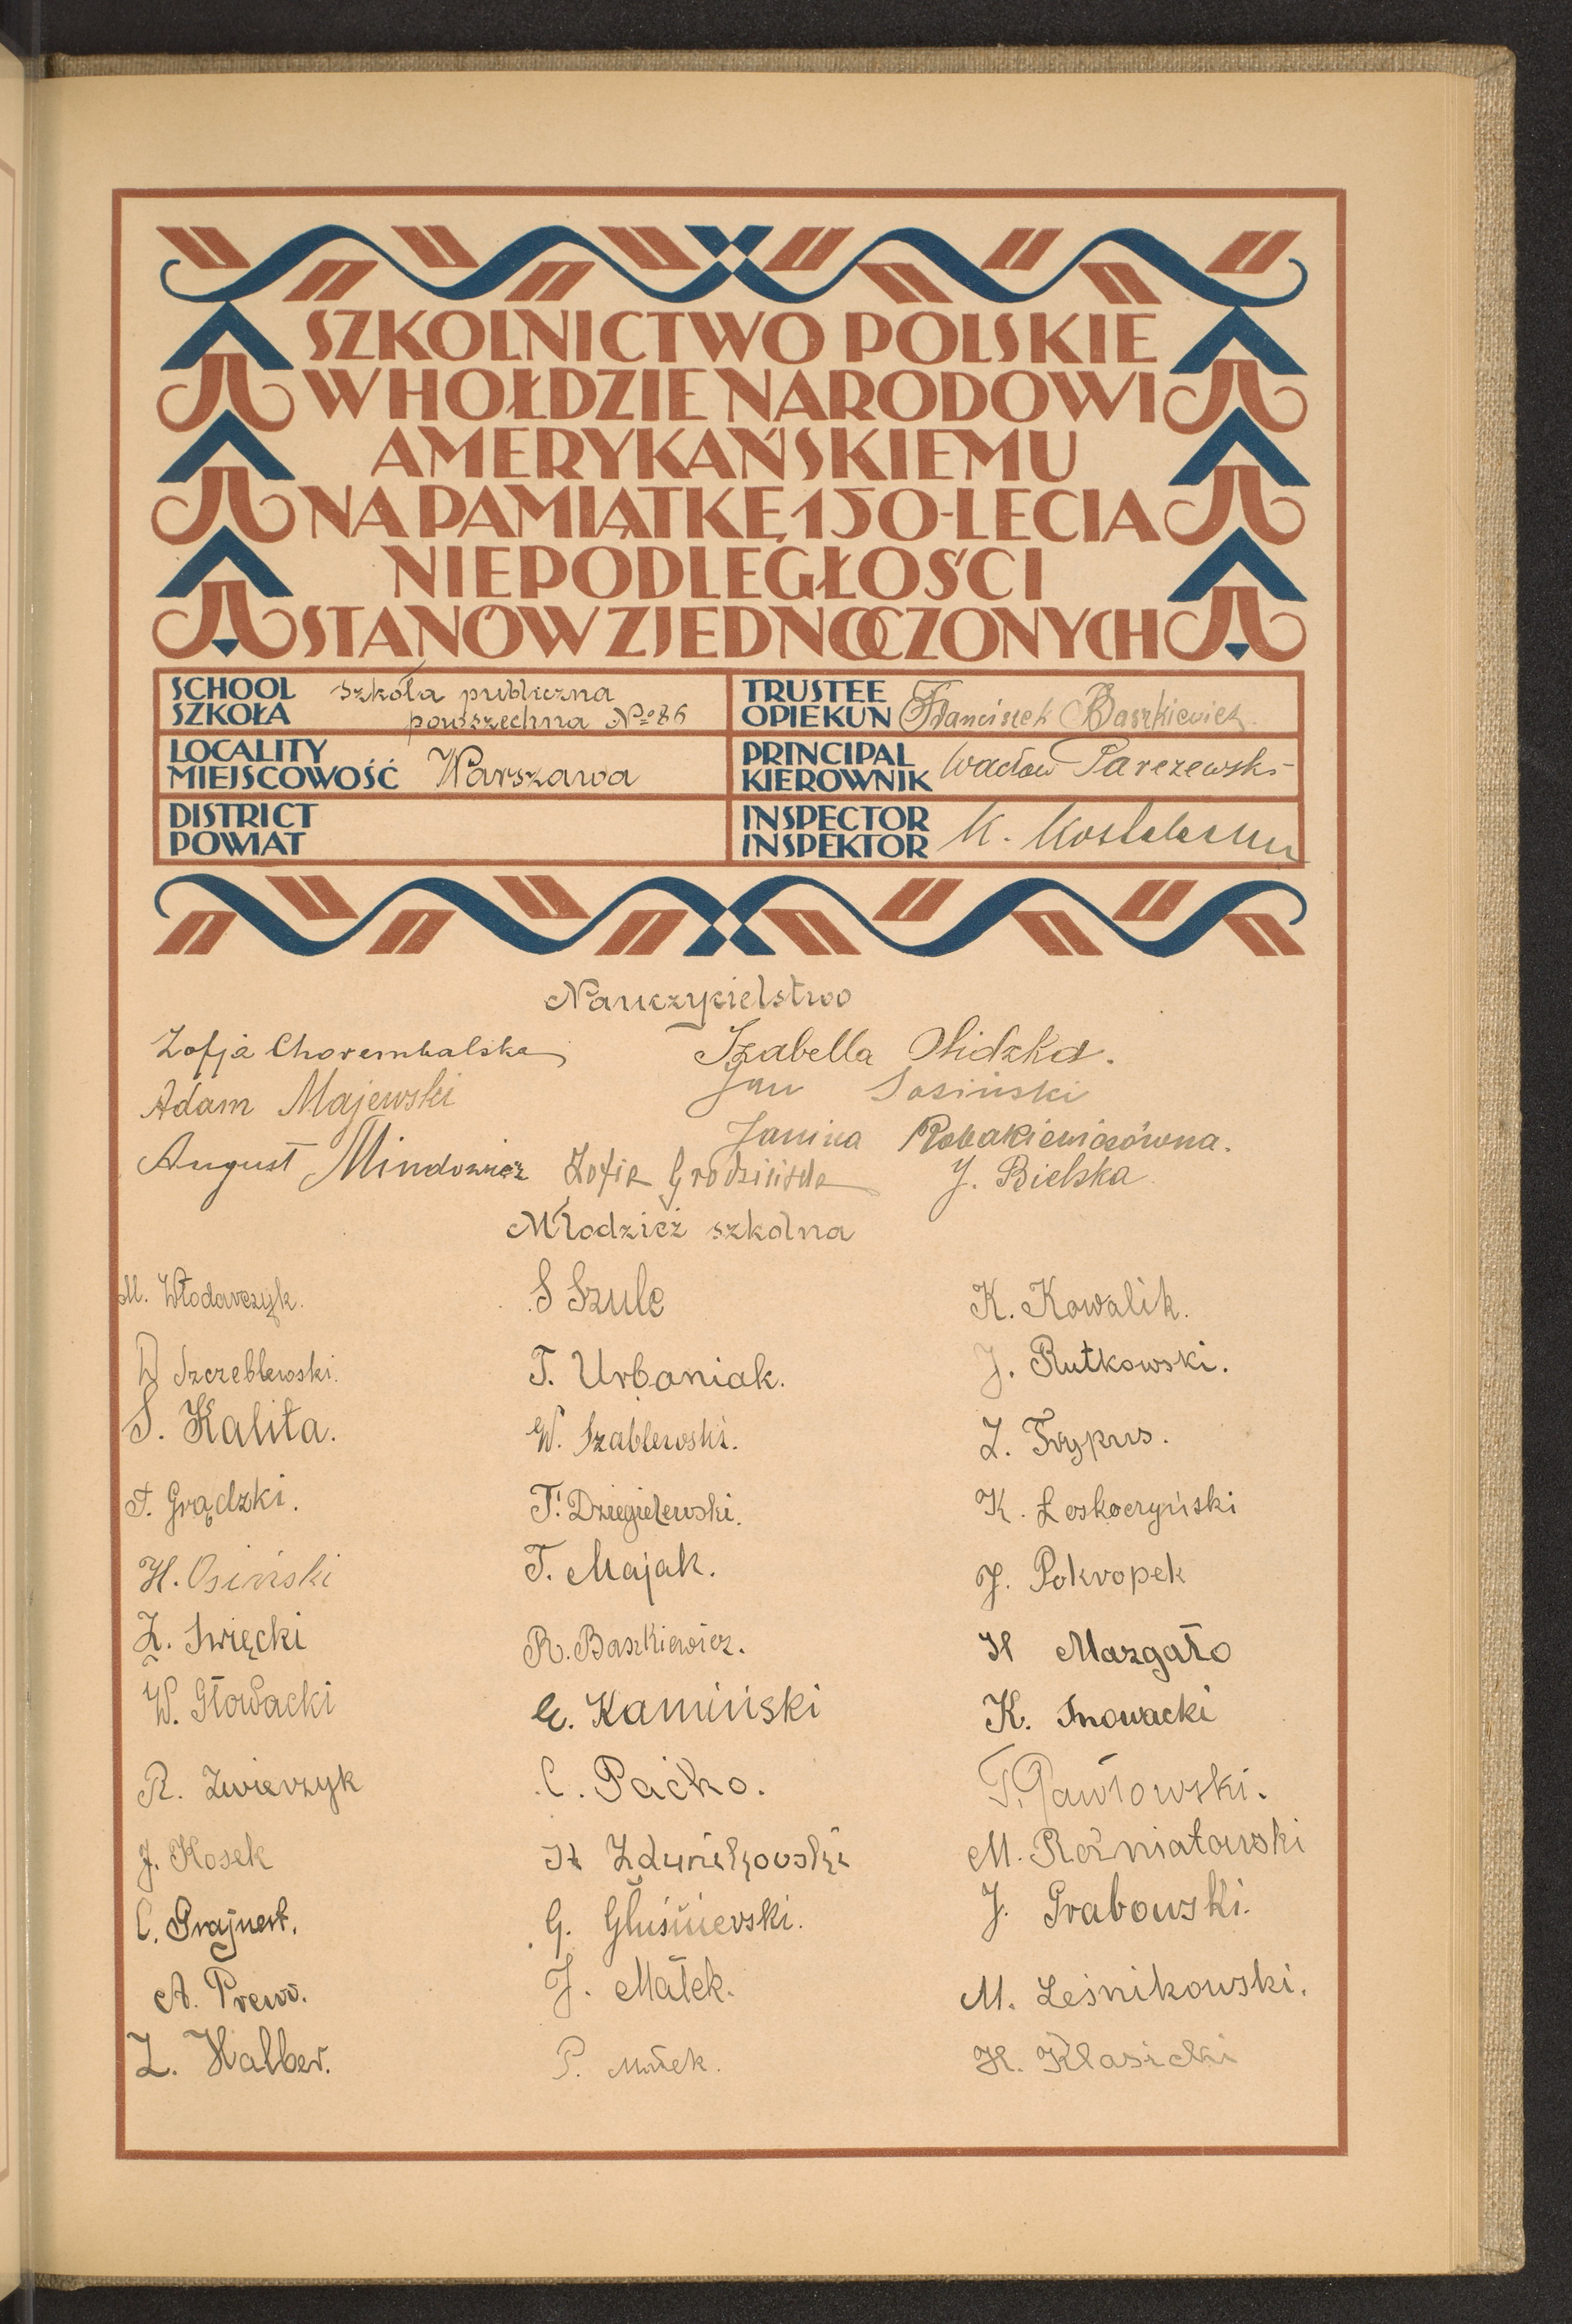 SZKOLNICTWO POLSKIE
W HOŁDZIE NARODOWI
AMERYKAŃSKIEMU
NA PAMIĄTKĘ 150-LECIA
NIEPODLEGŁOŚCI
STANÓW ZJEDNOCZONYCH
SCHOOL SZKOŁA Szkoła publiczna powszechna №86
TRUSTEE OPIEKUN Franciszek Baszkiewicz.
LOCALITY MIEJSCOWOŚĆ Warszawa
PRINCIPAL KIEROWNIK Wacław Parczewski
DISTRICT POWIAT
INSPECTOR INSPEKTOR K.
Nauczycielstwo
Zofja Chorembalska Izabella
Adam Majewski Jan Sosiński
Janina Robakiewiczówna.
August Mindowicz Zofia Grodzińska J. Bielska
Młodzież szkolna
M. Włodarczyk. S Szulc K. Kowalik.
Szczeblewski. T. Urbaniak. J. Rutkowski.
S. Kalita. W. Szablewski. Z. Trypus.
T. Grądzki. T. Dzięgielewski. K. Łoskoczyński
H. Osiński T. Majak. J. Pokropek
Z. Święcki R. Baszkiewicz. H Mazgało
W. Głowacki E. Kamiński K. Snowacki
R. Zwierzyk C. Pačko. T. Pawłowski.
J. Kosek H Zdunikowski M. Rożniatowski
C. Grajnert. G. Głuśniewski. J. Grabowski.
A. Prews. J. Małek. M. Leśnikowski.
Z. Halber. P. H. Klasicki